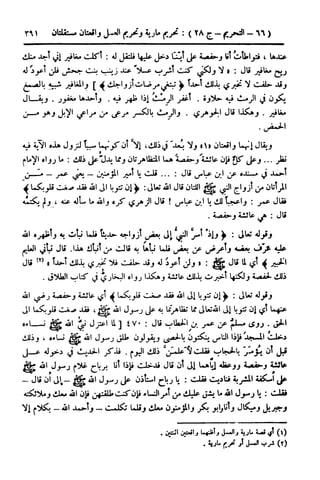 (٦٦ - التحريم - ج ٢٨) : تحريم مارية وتحريم العسل واقعتان مستقلتان ٣٩١
عندها ، فتواطأتُ أنا وحفصة على أيتنا دخل عليها فلتقل له : أكلت مغافير إني أجد منك
ريح مغافير قال : لا ولكني كنت أشرب عسلاً عند زينب بنت جحش فلن أعود له
وقد حلفت لا تخبري بذلك أحداً ﴿ تبتغي مرضات أزواجك ﴾ ] والمغافير شبيه بالصمغ
يكون في الرمث فيه حلاوة . أغفر الرمث إذا ظهر فيه . وأحدها مغفور . ويقال
مغافير . وهكذا قال الجوهري . والرمث بالكسر مرعى من مراعي الإبل وهو من
الحمض .
ويقال إنهما واقعتان (١) ولا بعد في ذلك، إلا أن كونهما سبباً لنزول هذه الآية فيه
نظر ... وعلى كل فإن عائشة وحفصة هما المتظاهرتان ومما يدل على ذلك : ما رواه الإمام
أحمد في مسنده عن ابن عباس قال : ... قلت يا أمير المؤمنين - يعني عمر - مَن
المرأتان من أزواج النبي ﷺ اللتان قال الله تعالى: ﴿ إن تتوبا إلى الله فقد صغت قلوبكما ﴾
فقال عمر : واعجباً لك يا ابن عباس ! قال الزهري كره والله ما سأله عنه ، ولم يكتمه
قال : هي عائشة وحفصة .
وقوله تعالى : ﴿ وإذ أسر النبي إلى بعض أزواجه حديثاً فلما نبأت به وأظهره الله
عليه عرف بعضه وأعرض عن بعض فلما نبأها به قالت من أنبأك هذا. قال نبأني العليم
الخبير ﴾ أي لما قال ﷺ : « ولن أعود له وقد حلفت فلا تخبري بذلك أحداً » (٢) قال
ذلك لحفصة ولكنها أخبرت بذلك عائشة وهكذا رواه البخاري في كتاب الطلاق .
وقوله تعالى : ﴿ إن تتوبا إلى الله فقد صغت قلوبكما ﴾ أي عائشة وحفصة رضي الله
عنهما أي إن تتوبا إلى الله تعالى مما تظاهرتما به على رسول الله ﷺ ، فقد صغت قلوبكما إلى
الحق . روى مسلم عن عمر بن الخطاب قال : ٤٧٠ [ لما اعتزل نبي الله ﷺ نساءه
دخلت المسجد فإذا الناس ينكتون بالحصى ويقولون طلق رسول الله ﷺ نساءه ، وذلك
قبل أن يؤمر بالحجاب فقلت لأعلمن ذلك اليوم . فذكر الحديث في دخوله على
عائشة وحفصة ووعظه إياهما إلى أن قال فدخلت فإذا أنا برباح غلام رسول الله ﷺ
على أسكفة المشربة فناديت فقلت : يا رباح استأذن على رسول الله ﷺ - إلى أن قال -
فقلت : يا رسول الله ما يشق عليك من أمر النساء فإن كنت طلقتهن فإن الله معك وملائكته
وجبريل وميكال وأنا وأبو بكر والمؤمنون معك وقلما تكلمت - وأحمد الله - بكلام إلا
(١) أي قصة مارية والعسل واقعتان اثنتين .
(٢) شرب العسل أو تحريم مارية .